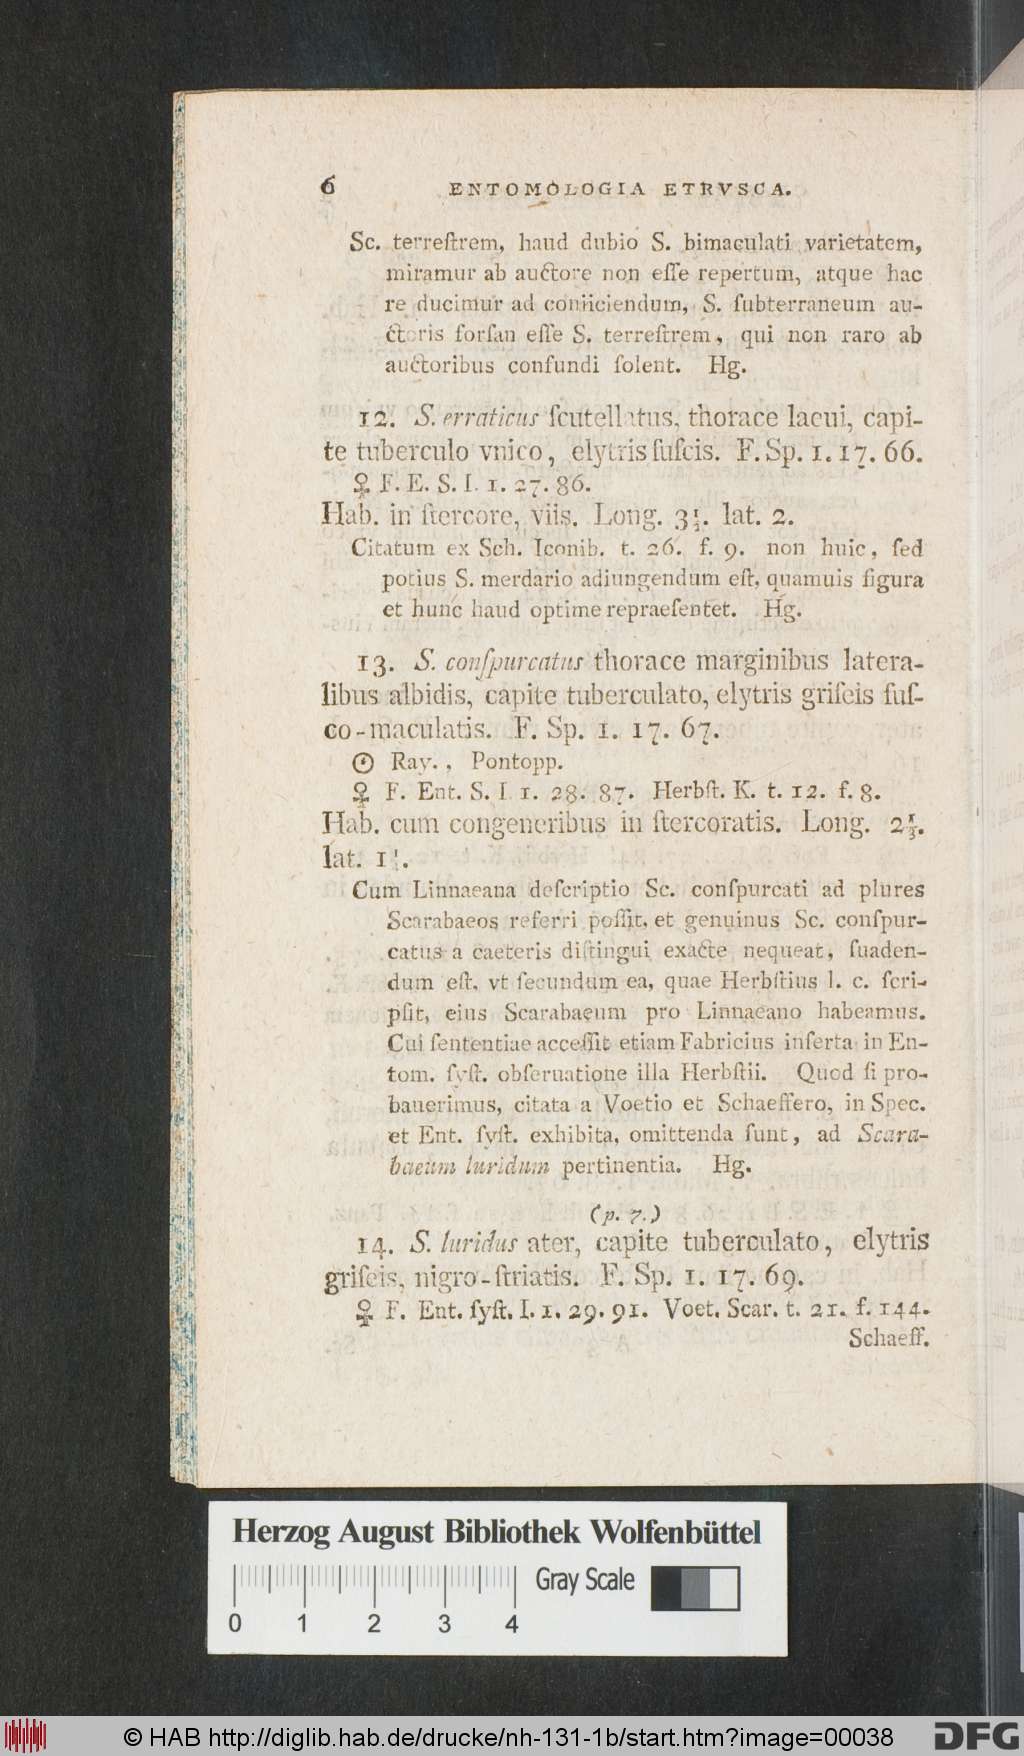 6 ENTOMOLOGIA ETRVSCA.
Sc. terreſtrem, haud dubio S. bimaculati varietatem,
miramur ab auctore non eſſe repertum, atque hac
re ducimur ad coniiciendum, S. ſubterraneum au-
ctoris forſan eſſe S. terreſtrem, qui non raro ab
auctoribus confundi ſolent. Hg.
12. S. erraticus ſcutellatus, thorace laeui, capi-
te tuberculo vnico, elytris fuſcis. F. Sp. 1. 17. 66.
♀ F. E. S. I. 1. 27. 86.
Hab. in ſtercore, viis. Long. 3½. lat. 2.
Citatum ex Sch. Iconib. t. 26. f. 9. non huic, ſed
potius S. merdario adiungendum eſt, quamuis figura
et hunc haud optime repraeſentet. Hg.
13. S. conſpurcatus thorace marginibus latera-
libus albidis, capite tuberculato, elytris griſeis fuſ-
co-maculatis. F. Sp. 1. 17. 67.
☉ Ray., Pontopp.
♀ F. Ent. S. I. 1. 28. 87. Herbſt. K. t. 12. f. 8.
Hab. cum congeneribus in ſtercoratis. Long. 2⅓.
lat. 1
Cum Linnaeana deſcriptio Sc. conſpurcati ad plures
Scarabaeos referri poſſit, et genuinus Sc. conſpur-
catus a caeteris diſtingui exacte nequeat, ſuaden-
dum eſt, vt ſecundum ea, quae Herbſtius l. c. ſcri-
pſit, eius Scarabaeum pro Linnaeano habeamus.
Cui ſententiae acceſſit etiam Fabricius inſerta in En-
tom. ſyſt. obſeruatione illa Herbſtii. Quod ſi pro-
bauerimus, citata a Voetio et Schaeffero, in Spec.
et Ent. ſyſt. exhibita, omittenda ſunt, ad Scara-
baeum luridum pertinentia. Hg.
(p. 7.)
14. S. luridus ater, capite tuberculato, elytris
griſeis, nigro-ſtriatis. F. Sp. 1. 17. 69.
♀ F. Ent. ſyſt. I. 1. 29. 91. Voet. Scar. t. 21. f. 144.
Schaeff.
Herzog August Bibliothek Wolfenbüttel
Gray Scale
0 1 2 3 4
© HAB http://diglib.hab.de/drucke/nh-131-1b/start.htm?image=00038
DFG